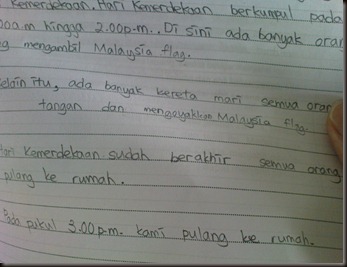 Kemerdekaan. Hari Kemerdekaan berkumpul pada
00a.m hingga 2.00p.m. Di sini ada banyak oran
mengambil Malaysia flag.
elain itu, ada banyak kereta mari semua oran
tangan dan mengoyakkan Malaysia flag.
Hari Kemerdekaan sudah berakhir semua orang
pulang ke rumah.
Pada pukul 3.00p.m. kami pulang ke rumah.